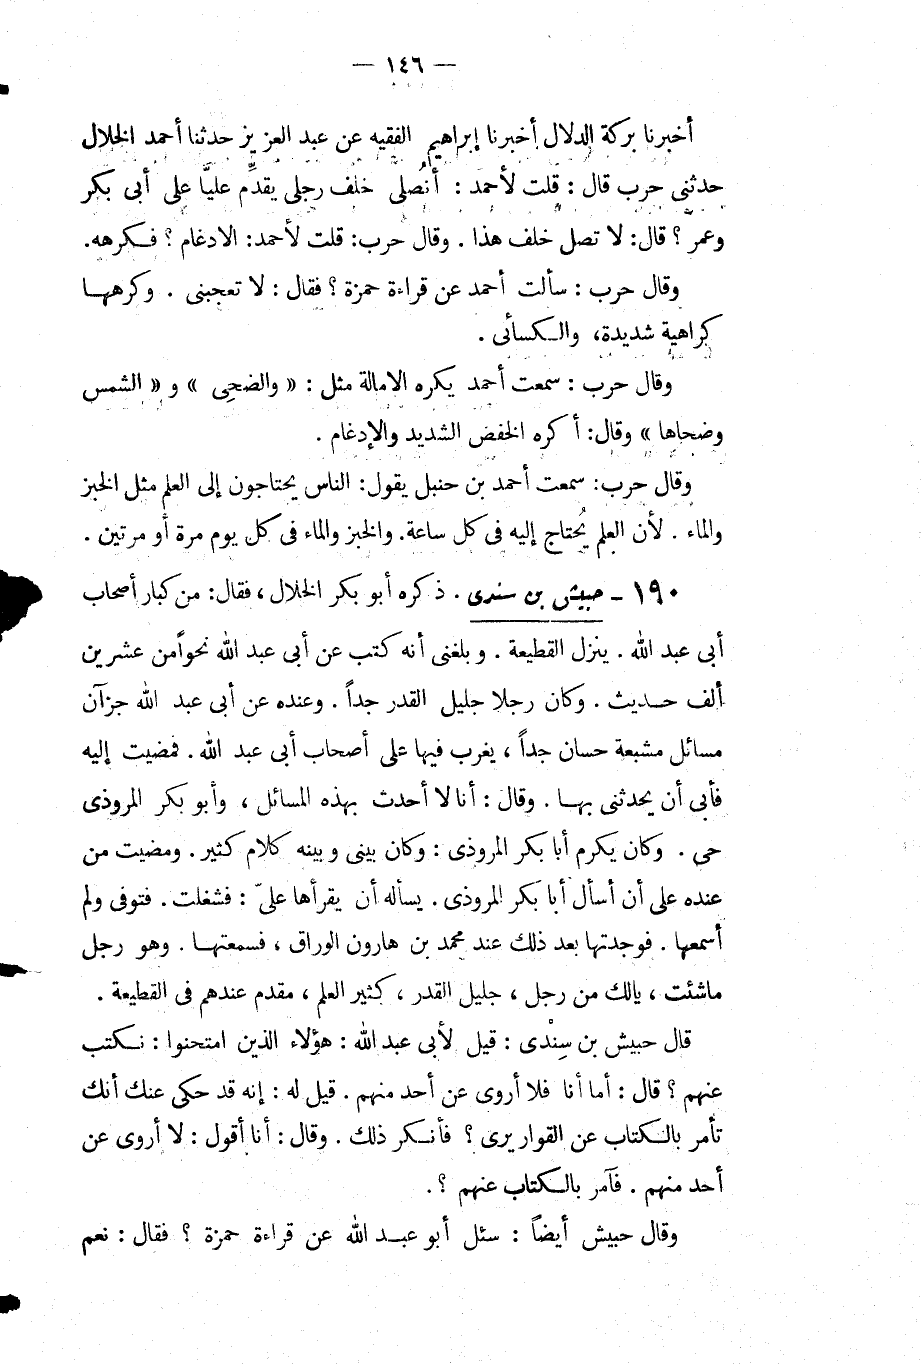 — ١٤٦ —
أخبرنا بركة الدلال أخبرنا إبراهيم الفقيه عن عبد العزيز حدثنا أحمد الخلال
حدثنى حرب قال : قلت لأحمد : أنُصلى خلف رجل يقدِّم عليَّا على أبى بكر
وعمر ؟ قال: لا تصل خلف هذا . وقال حرب: قلت لأحمد: الادغام ؟ فكرهه.
وقال حرب : سألت أحمد عن قراءة حمزة ؟ فقال : لا تعجبنى . وكرهها
كراهية شديدة، والكسأى .
وقال حرب : سمعت أحمد يكره الامالة مثل : « والضحِى » و « الشمس
وضحاها » وقال: أكره الخفض الشديد والإدغام .
وقال حرب: سمعت أحمد بن حنبل يقول: الناس يحتاجون إلى العلم مثل الخبز
والماء . لأن العلم يُحتاج إليه فى كل ساعة. والخبز والماء فى كل يوم مرة أو مرتين .
١٩٠ - حبيش بن سندى . ذكره أبو بكر الخلال ، فقال: من كبار أصحاب
أبى عبد الله . ينزل القطيعة . وبلغنى أنه كتب عن أبى عبد الله نحواً من عشرين
ألف حديث . وكان رجلا جليل القدر جداً . وعنده عن أبى عبد الله جزآن
مسائل مشبعة حسان جداً ، يغرب فيها على أصحاب أبى عبد الله . فمضيت إليه
فأبى أن يحدثنى بها . وقال : أنا لا أحدث بهذه المسائل ، وأبو بكر المروذى
حى . وكان يكرم أبا بكر المروذى : وكان بينى وبينه كلام كثير . ومضيت من
عنده على أن أسأل أبا بكر المروذى . يسأله أن يقرأها علىّ : فشغلت . فتوفى ولم
أسمعها . فوجدتها بعد ذلك عند محمد بن هارون الوراق ، فسمعتها . وهو رجل
ماشئت ، يالك من رجل ، جليل القدر ، كثير العلم ، مقدم عندهم فى القطيعة .
قال حبيش بن سِنْدى : قيل لأبى عبد الله : هؤلاء الذين امتحنوا : نكتب
عنهم ؟ قال : أما أنا فلا أروى عن أحد منهم . قيل له : إنه قد حكى عنك أنك
تأمر بالكتاب عن القواريرى ؟ فأنكر ذلك . وقال : أنا أقول : لا أروى عن
أحد منهم . فآمر بالكتاب عنهم ؟ .
وقال حبيش أيضاً : سئل أبو عبد الله عن قراءة حمزة ؟ فقال : نعم